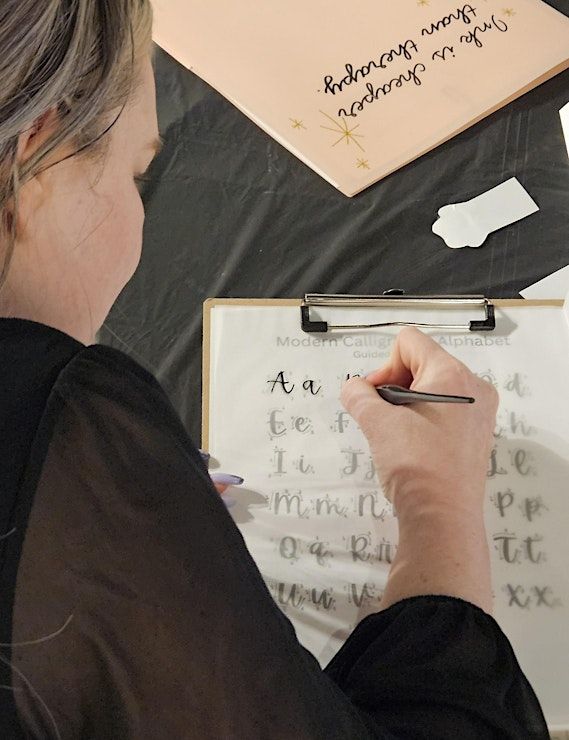 Ink is cheaper
than therapy.
Modern Alphabet
Guided
A a d
E e F h
I i J l
M m N P p
Q q R T t
U u V X x